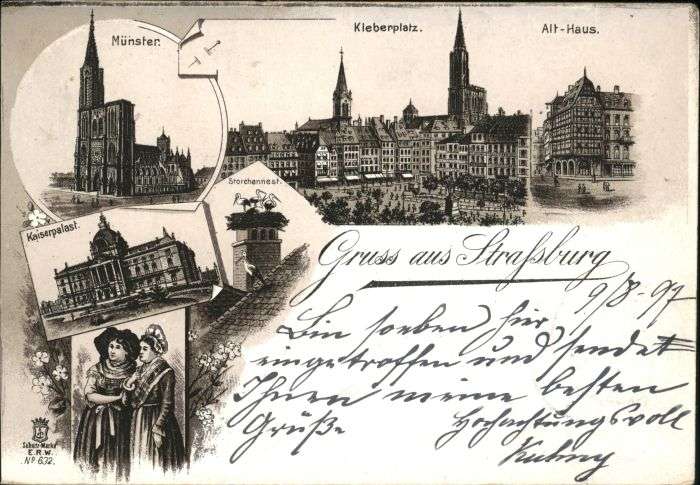 Münster.
Kleberplatz.
Alt-Haus.
Storchennest.
Kaiserpalast.
Gruss aus Straßburg
9/8-97
Bin soeben hier
eingetroffen und sendet
Ihnen meine besten
Grüße Hochachtungsvoll
Schutz-Marke
E.R.W.
No 632.